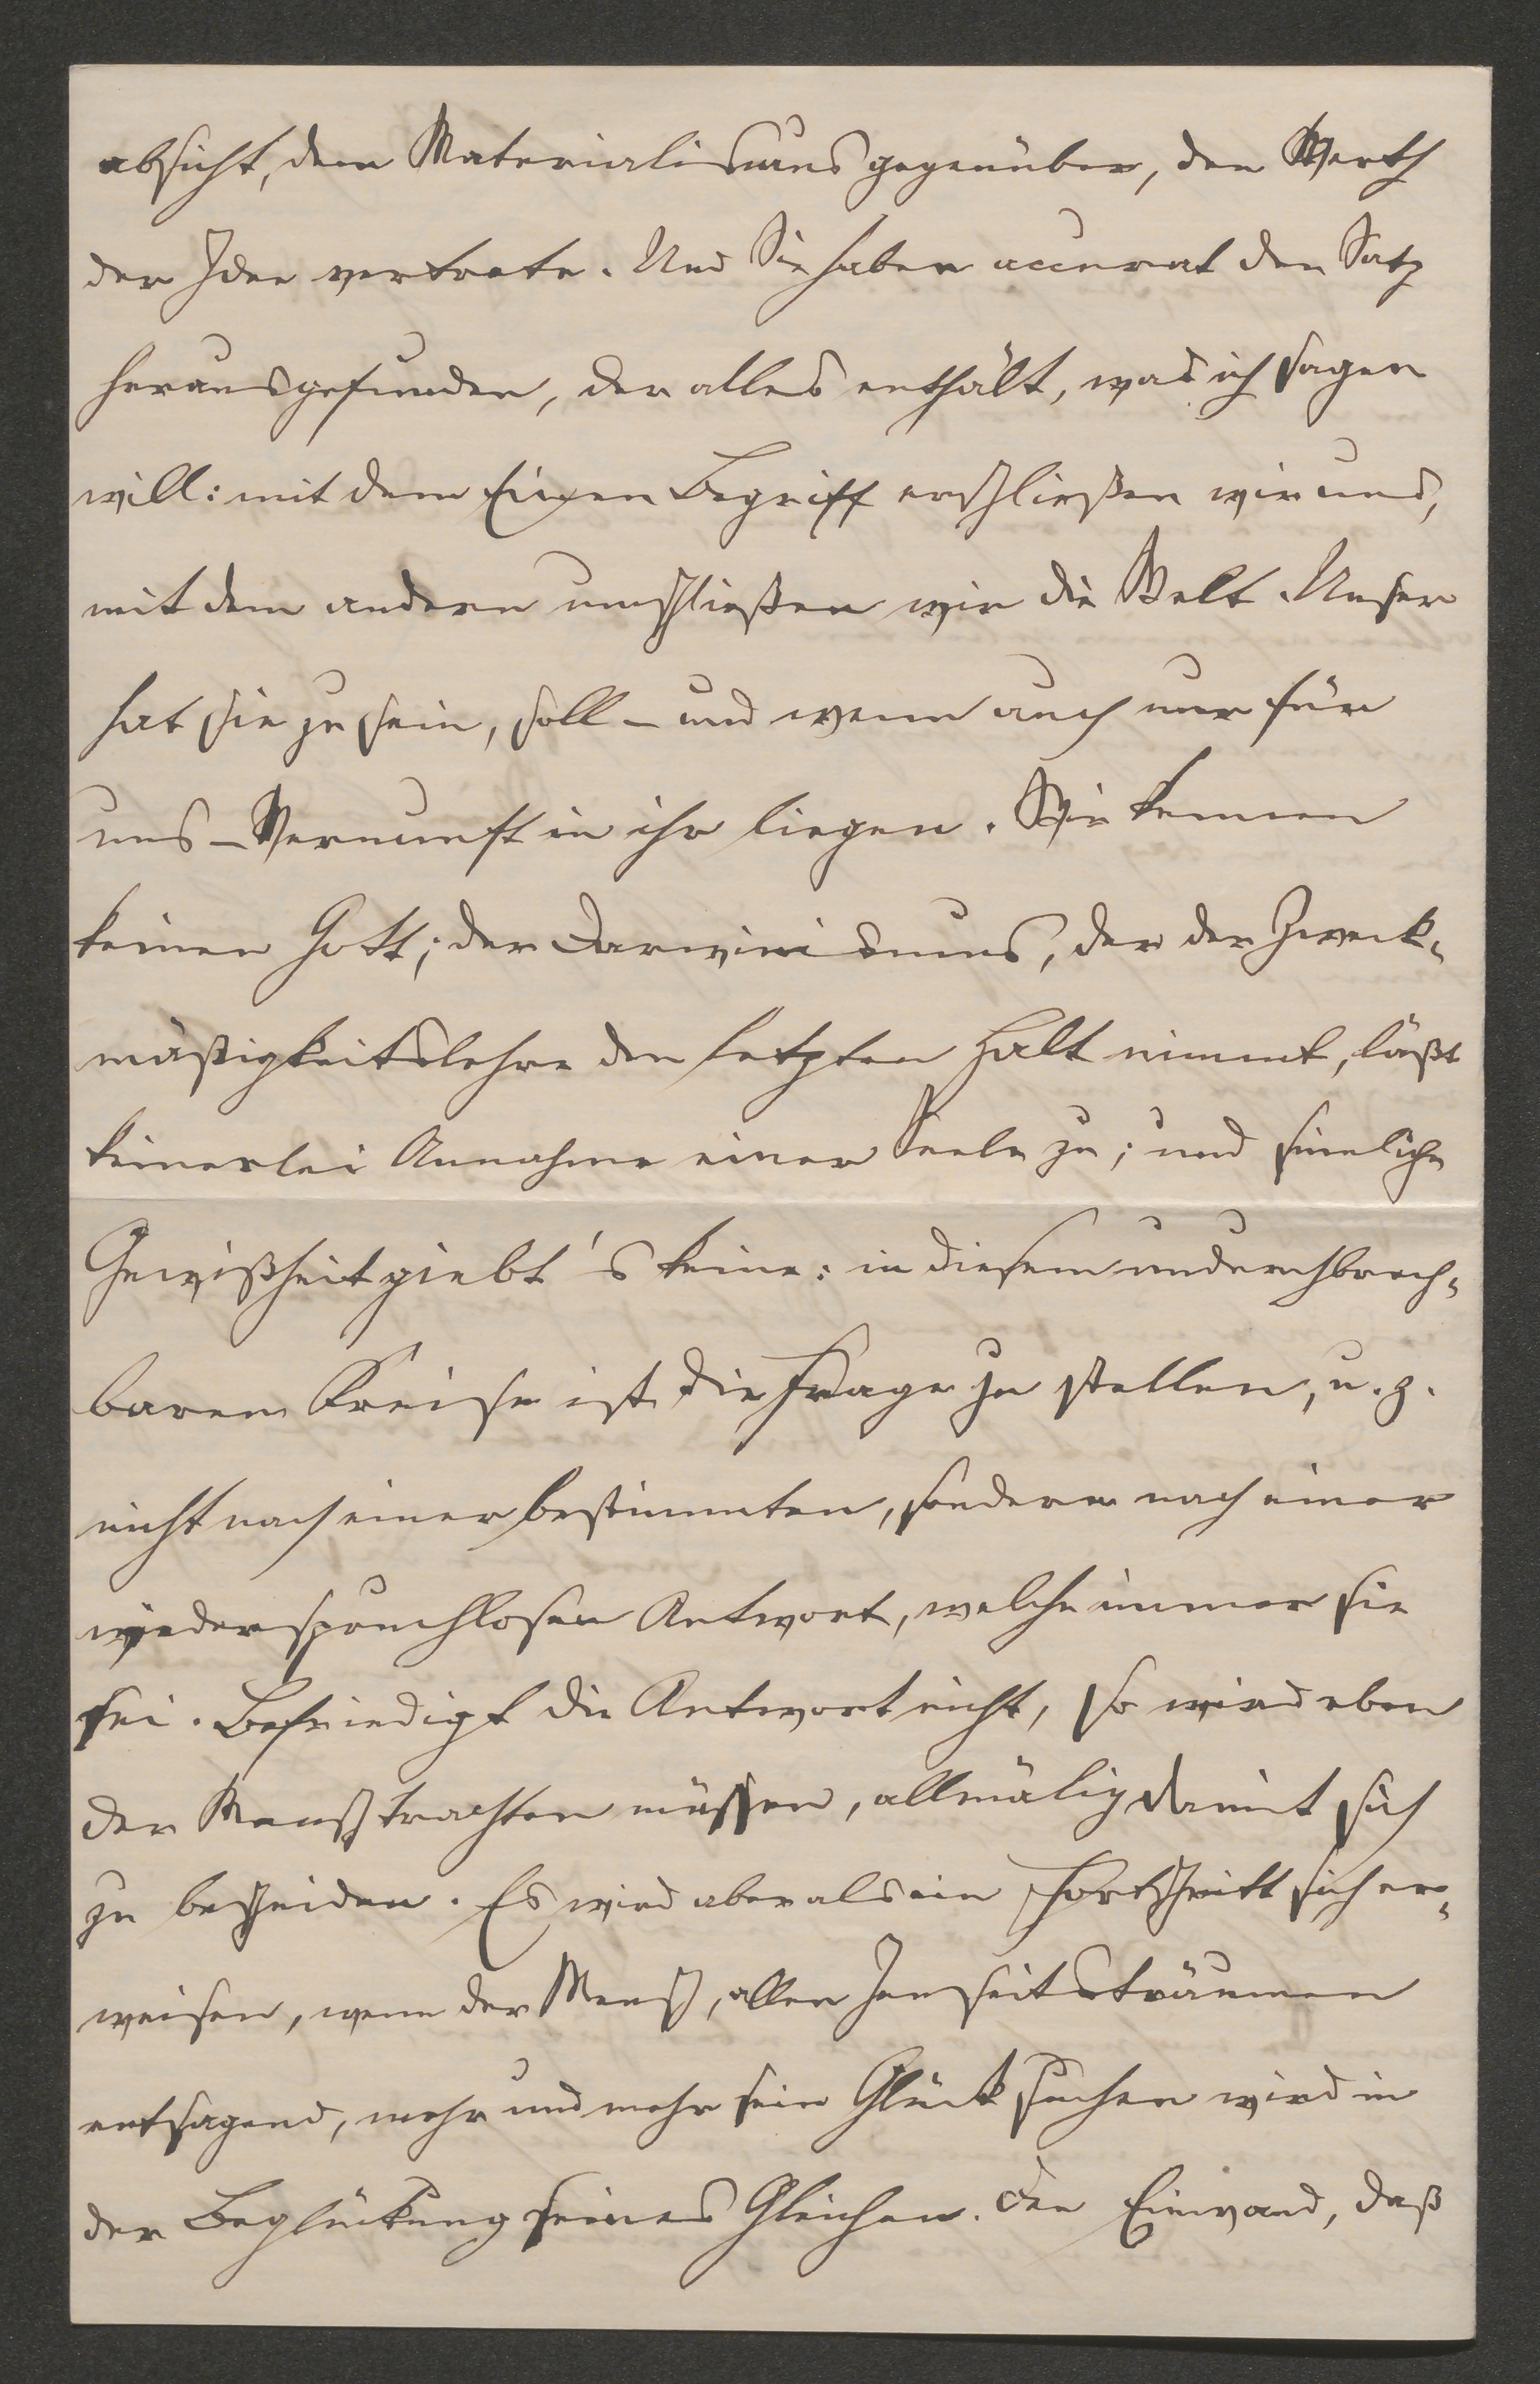 absicht, dem Materialismus gegenüber, den Werth
der Idee vertrete. Und Sie haben accurat den Satz
herausgefunden, der alles enthält, was ich sagen
will: mit dem Einen Begriff erschließen wir uns,
mit dem andern umschließen wir die Welt. Unser
hat sie zu sein, soll – und wenn auch nur für
uns – Vernunft in ihr liegen. Wir kennen
keinen Gott; der Darwinismus, der der Zweck-
mäßigkeitslehre den letzten Halt nimmt, läßt
keinerlei Annahme einer Seele zu; und sinnliche
Gewißheit giebt's keine: in diesem undurchbrech-
baren Kreise ist die Frage zu stellen, u. z.
nicht nach einer bestimmten, sondern nach einer
widerspruchlosen Antwort, welche immer sie
sei. Befriedigt die Antwort nicht, so wird eben
der Mensch trachten müssen, allmälig damit sich
zu bescheiden. Es wird aber als ein Fortschritt sich er-
weisen, wenn der Mensch, allen Jenseitsträumen
entsagend, mehr und mehr sein Glück suchen wird in
der Beglückung seines Gleichen. Den Einwand, daß